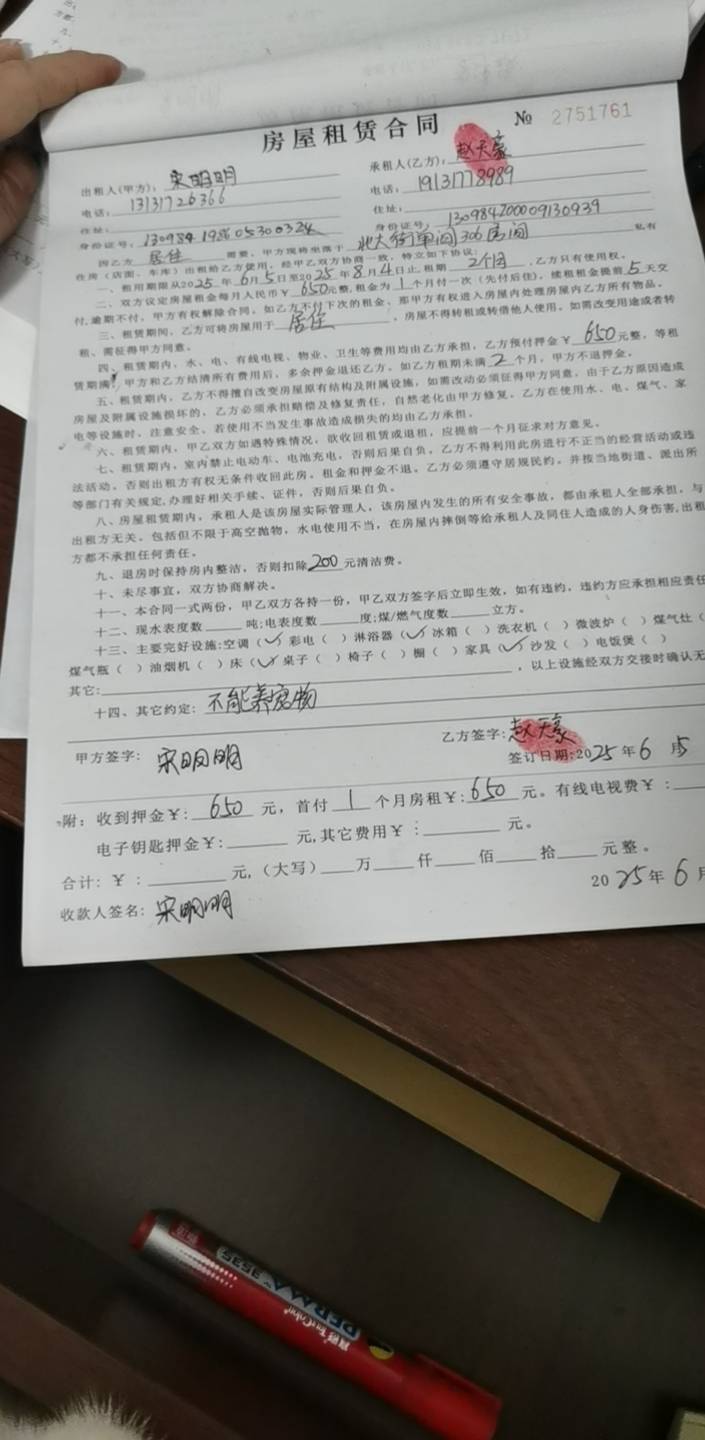 房屋租赁合同 № 2751761
出租人(甲方): 宋明明 承租人(乙方): 赵天豪
电话: 13131726366 电话: 19131778989
住址: 住址:
身份证号: 130984198605300324 身份证号: 130984200009130939
因乙方 居住 需要,甲方现将坐落于 北大街单间306房间 私有
住房(店面、车库)出租给乙方使用,经甲乙双方协商一致,特立如下协议:
一、租用期限从2025年6月5日至2025年8月4日止,租期 2个月 ,乙方只有使用权。
二、双方议定房屋租金每月人民币¥ 650元整,租金为 1 个月付一次(先付后住),续租租金提前 5 天交
付,逾期不付,甲方有权解除合同。如乙方不付下次的租金,那甲方有权进入房屋内处理房屋内乙方所有物品。
三、租赁期间,乙方可将房屋用于 居住 ,房屋不得转租或转借他人使用。如需改变用途或者转
租、需征得甲方同意。
四、租赁期内,水、电、有线电视、物业、卫生等费用均由乙方承担,乙方预付押金¥ 650 元整,等租
赁期满,甲方和乙方结清所有费用后,多余押金退还乙方。如乙方租期未满 2 个月,甲方不退押金。
五、租赁期内,乙方不得擅自改变房屋原有结构及附属设施,如需改动必须征得甲方同意,由于乙方原因造成
房屋及附属设施损坏的,乙方必须承担赔偿及修复责任,自然老化由甲方修复。乙方在使用水、电、煤气、家
电等设施时,注意安全。若使用不当发生事故造成损失的均由乙方承担。
六、租赁期内,甲乙双方如遇特殊情况,欲收回租赁或退租,应提前一个月征求对方意见。
七、租赁期内,室内禁止电动车、电池充电,否则后果自负。乙方不得利用此房进行不正当的经营活动或违
法活动。否则出租方有权无条件收回此房。租金和押金不退。乙方必须遵守居规民约。并按当地街道、派出所
等部门有关规定,办理好相关手续、证件,否则后果自负。
八、房屋租赁期内,承租人是该房屋实际管理人,该房屋内发生的所有安全事故,都由承租人全部承担,与
出租方无关。包括但不限于高空抛物,水电使用不当,在房屋内摔倒等给承租人及同住人造成的人身伤害,出租
方都不承担任何责任。
九、退房时保持房内整洁,否则扣除 200 元清洁费。
十、未尽事宜,双方协商解决。
十一、本合同一式两份,甲乙双方各持一份,甲乙双方签字后立即生效,如有违约,违约方应承担相应责任
十二、现水表度数 吨;电表度数 度;煤/燃气度数 立方。
十三、主要完好设施:空调(✓)彩电( )淋浴器(✓)冰箱( )洗衣机( )微波炉( )煤气灶(
煤气瓶( )油烟机( )床(✓)桌子( )椅子( )橱( )家具(✓)沙发( )电饭煲( )
其它: ,以上设施经双方交接时确认无
十四、其它约定: 不能养宠物
甲方签字: 宋明明 乙方签字: 赵天豪
签订日期:2025年6月5
附:收到押金¥: 650 元,首付 1 个月房租¥: 650 元。有线电视费¥:
电子钥匙押金¥: 元,其它费用¥: 元。
合计:¥: 元,(大写) 万 仟 佰 拾 元整。
收款人签名: 宋明明 2025年6月
PERMA 3535